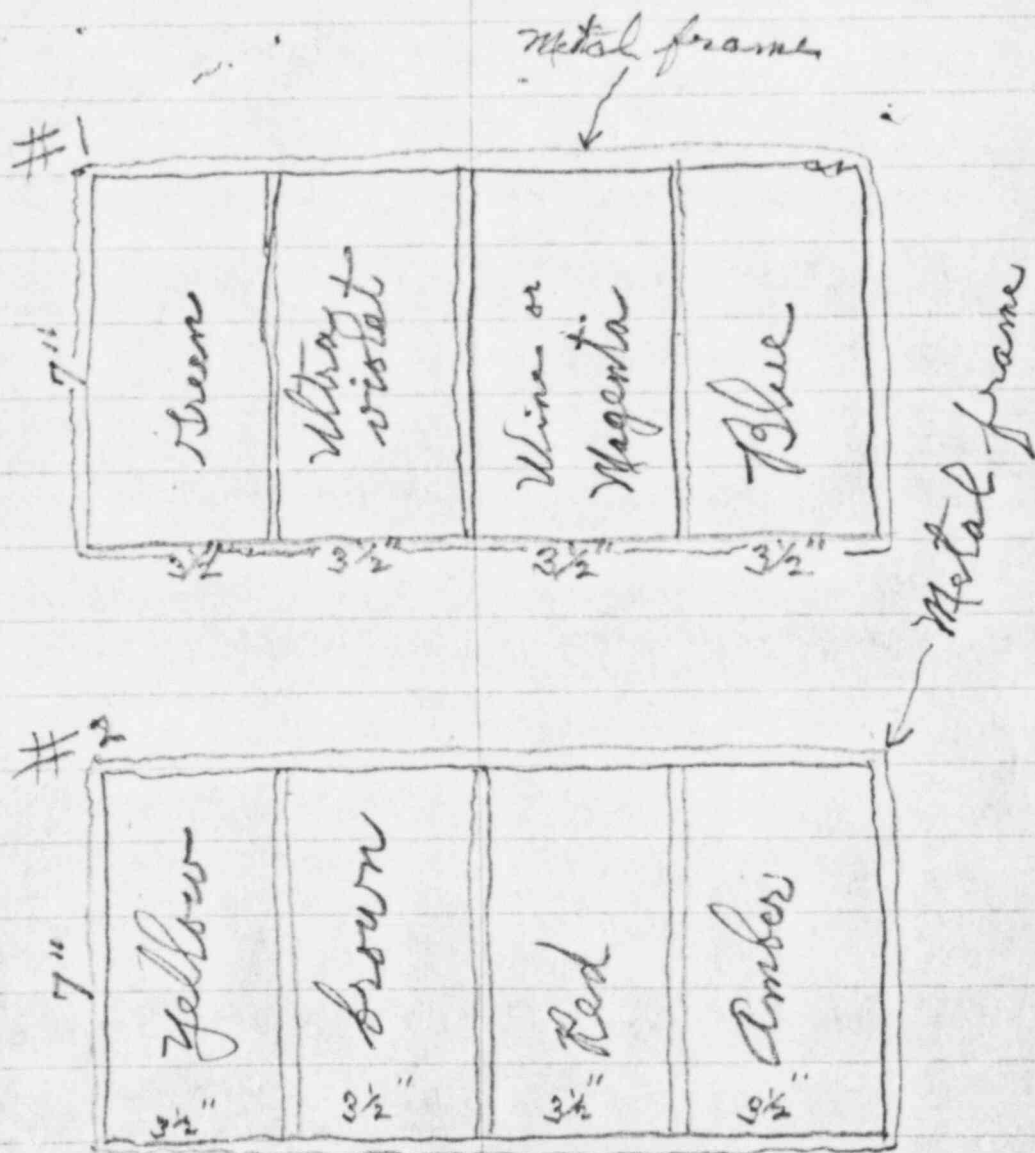 Metal frame
#1
7"
Green
Ultra
violet
Wine or
Magenta
Blue
3½"
3½"
3½"
3½"
Metal frame
#2
7"
Yellow
brown
Red
Amber
3½"
3½"
3½"
3½"